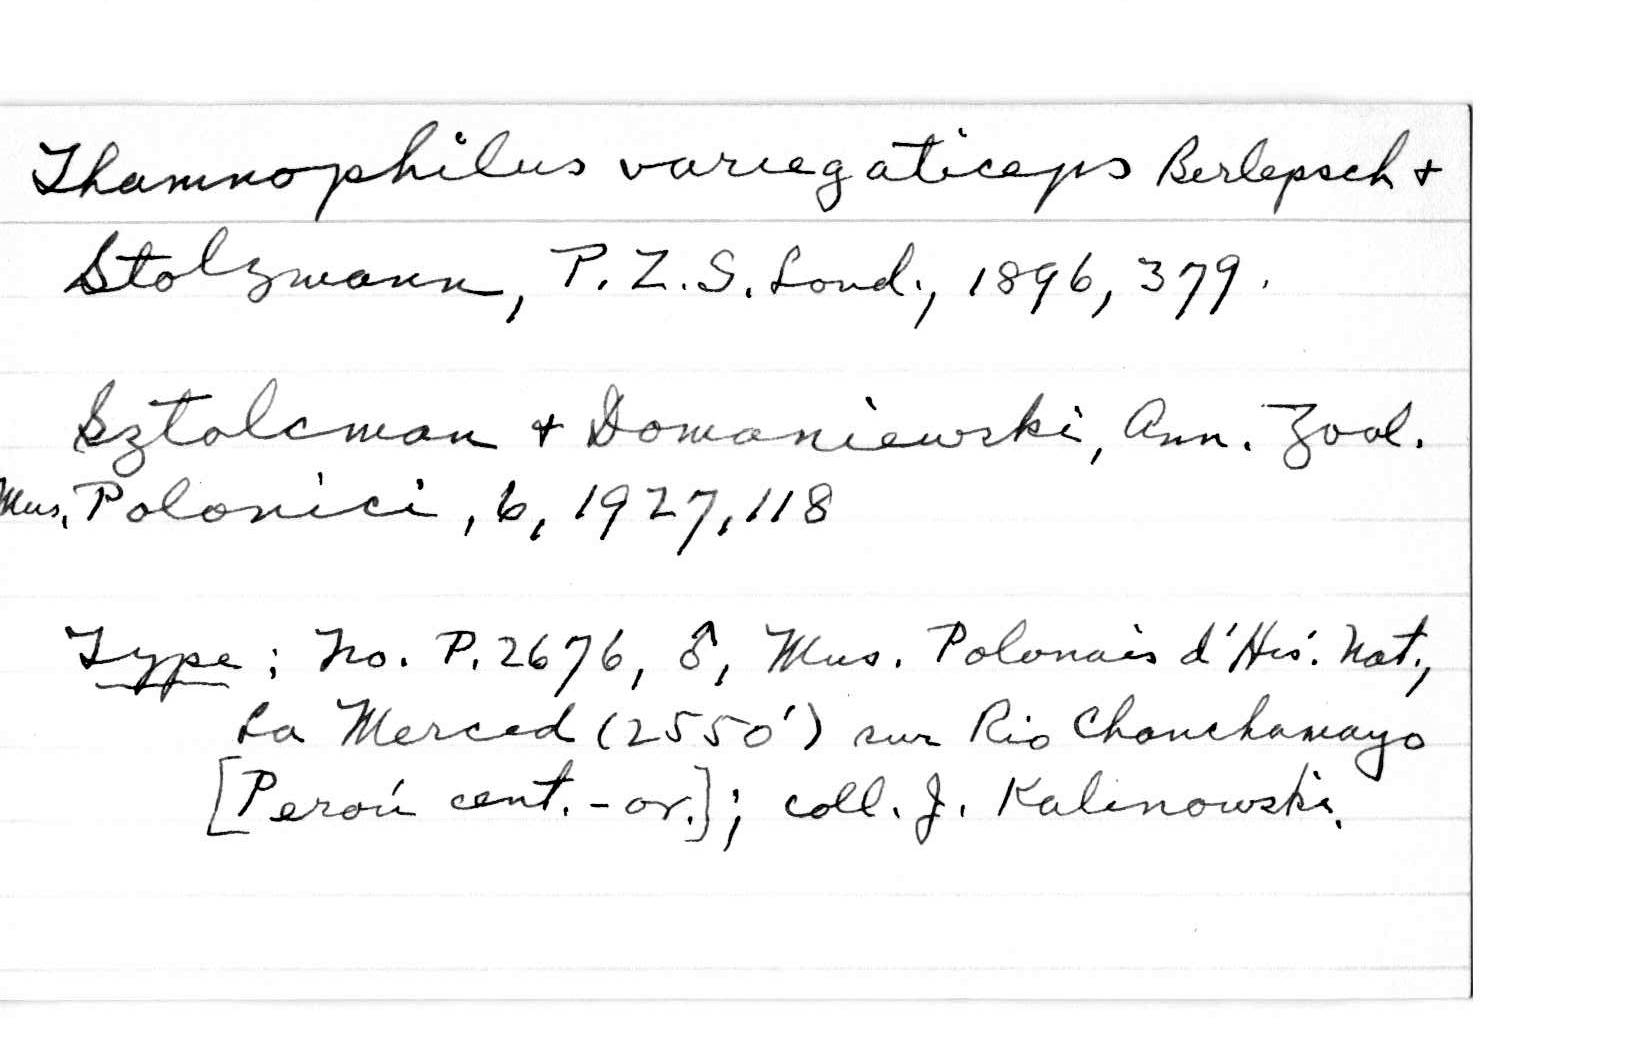 Thamnophilus variegaticeps Berlepsch +
Stolzmann, P. Z. S. Lond., 1896, 379.
Sztolcman + Domaniewski, Ann. Zool.
Mus. Polonici, 6, 1927, 118
Type; No. P. 2676, ♂, Mus. Polonais d'His. Nat.,
La Merced (2550') sur Rio Chanchamayo
[Peroú cent.-or.]; coll. J. Kalinowski.